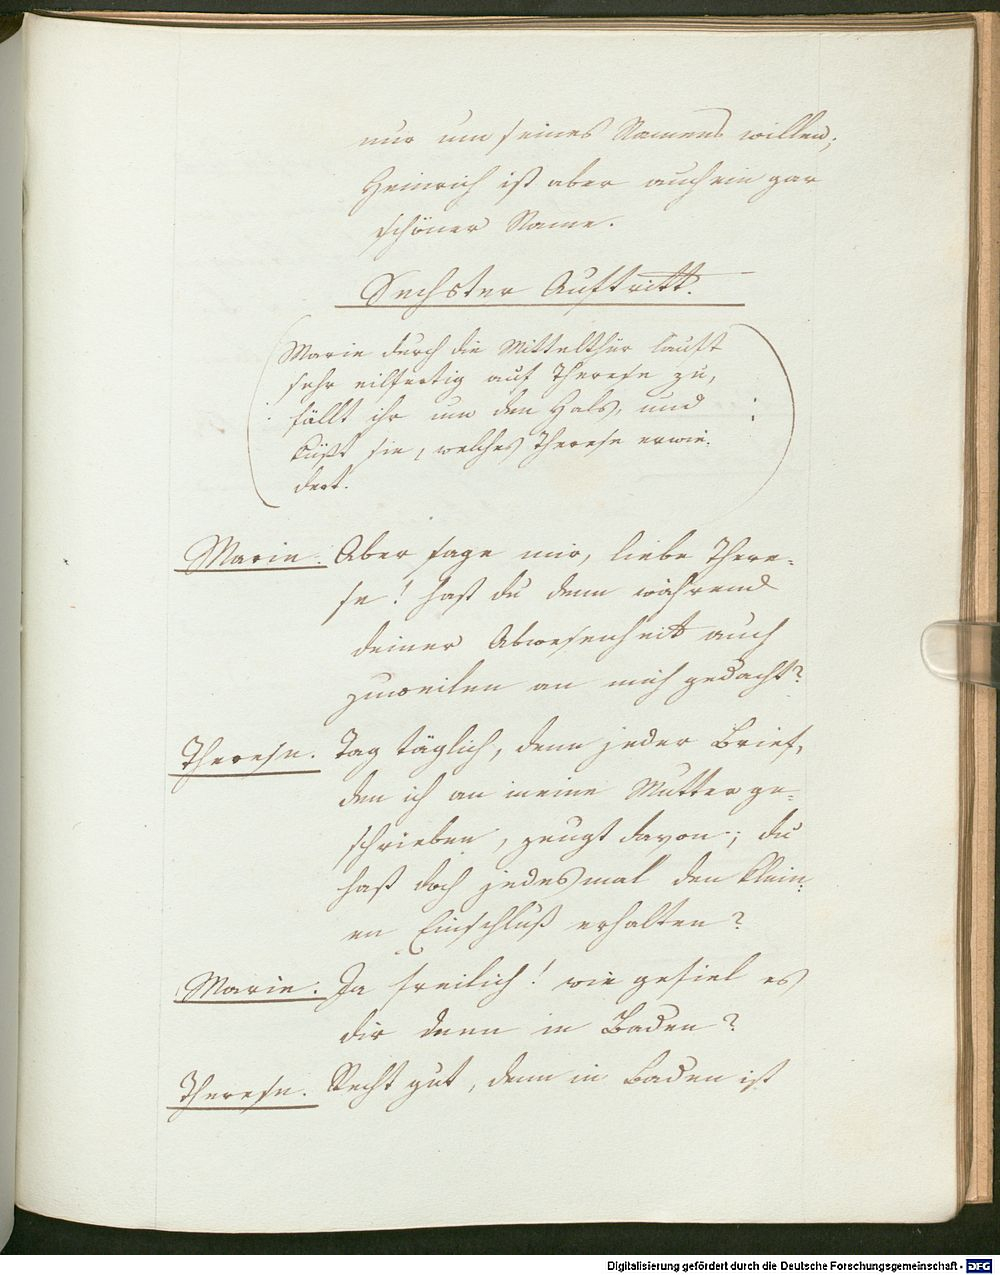 nur um seines Namens willen;
Heinrich ist aber auch ein gar
schöner Name.
Sechster Auftritt.
(Marie durch die Mittelthür lauft
sehr eilfertig auf Therese zu,
fällt ihr um den Hals, und
küßt sie, welches Therese erwie-
dert.)
Marie. Aber sage mir, liebe There-
se! hast du denn während
deiner Abwesenheit auch
zuweilen an mich gedacht?
Therese. Tag täglich, denn jeder Brief,
den ich an meine Mutter ge-
schrieben, zeugt davon; du
hast doch jedesmal den klein-
en Einschluß erhalten?
Marie. Ja freilich! wie gefiel es
dir denn in Baden?
Therese. Recht gut, denn in Baden ist
Digitalisierung gefördert durch die Deutsche Forschungsgemeinschaft - DFG